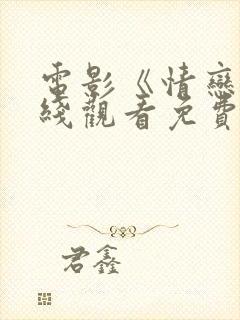 電影《情戀
綫觀看免費
君鑫